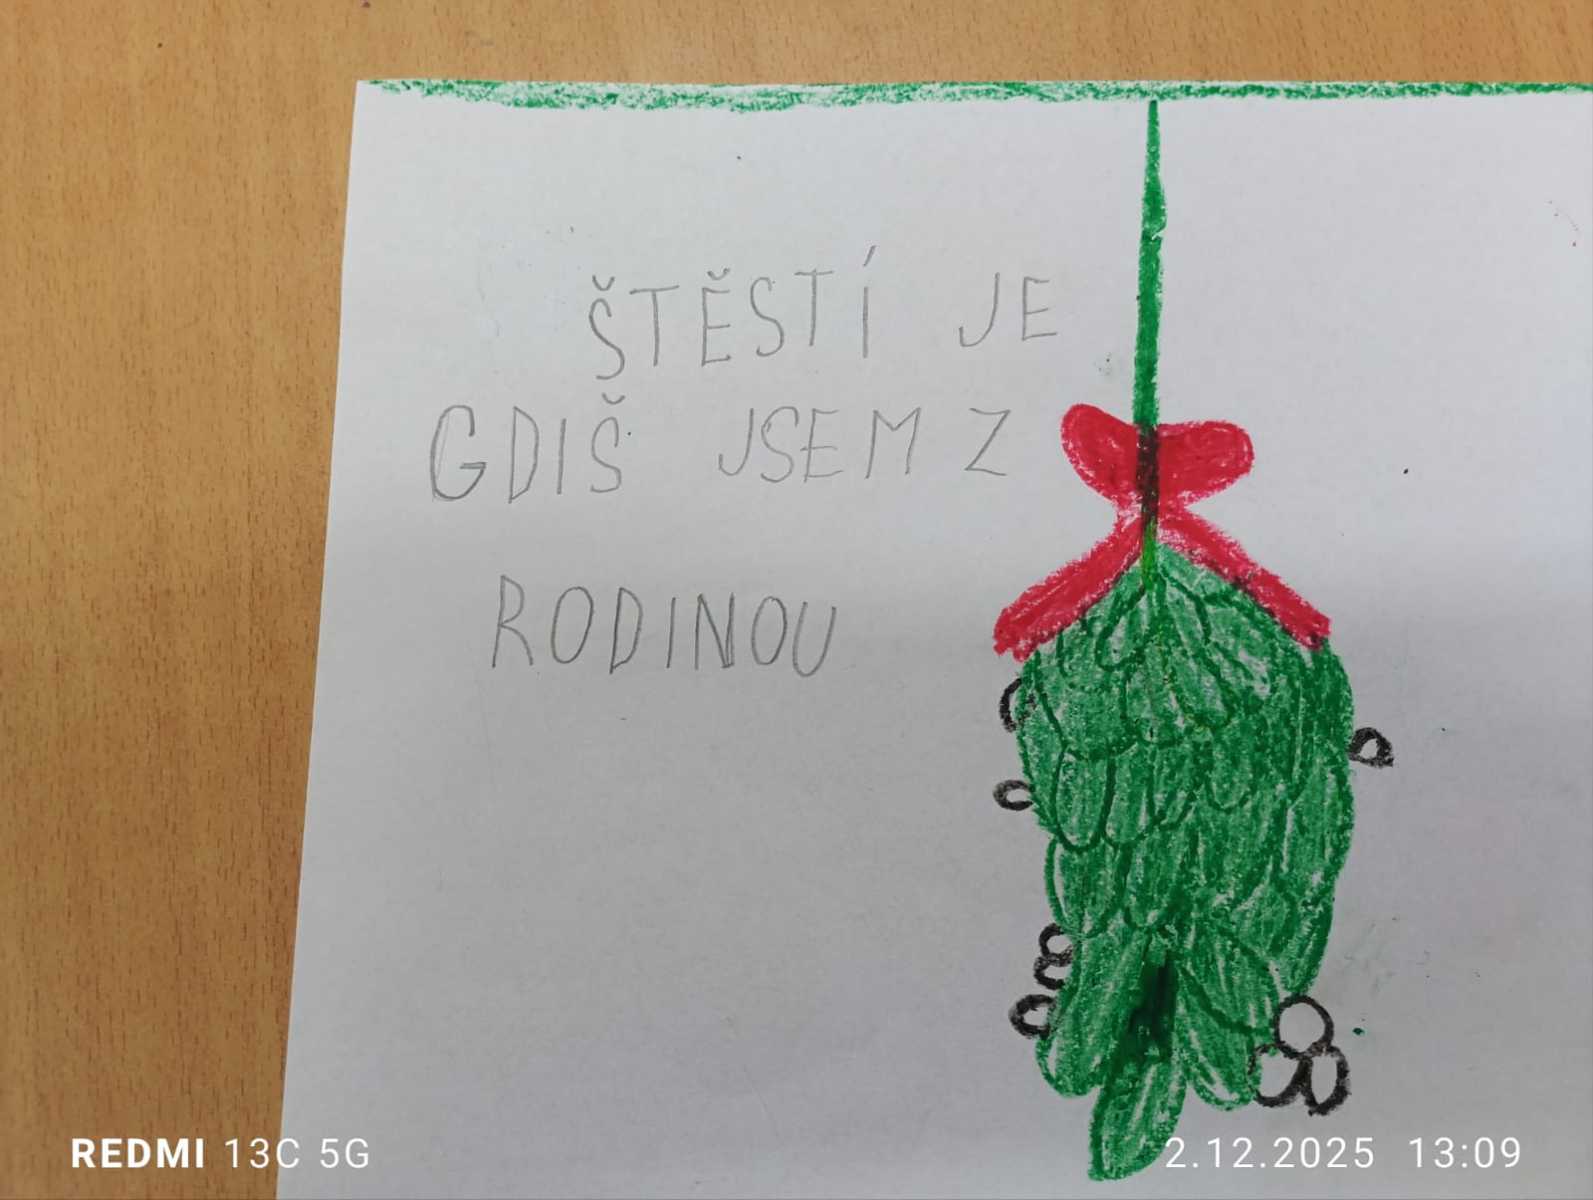 ŠTĚSTÍ JE
GDIŠ JSEM Z
RODINOU
REDMI 13C 5G
2.12.2025 13:09